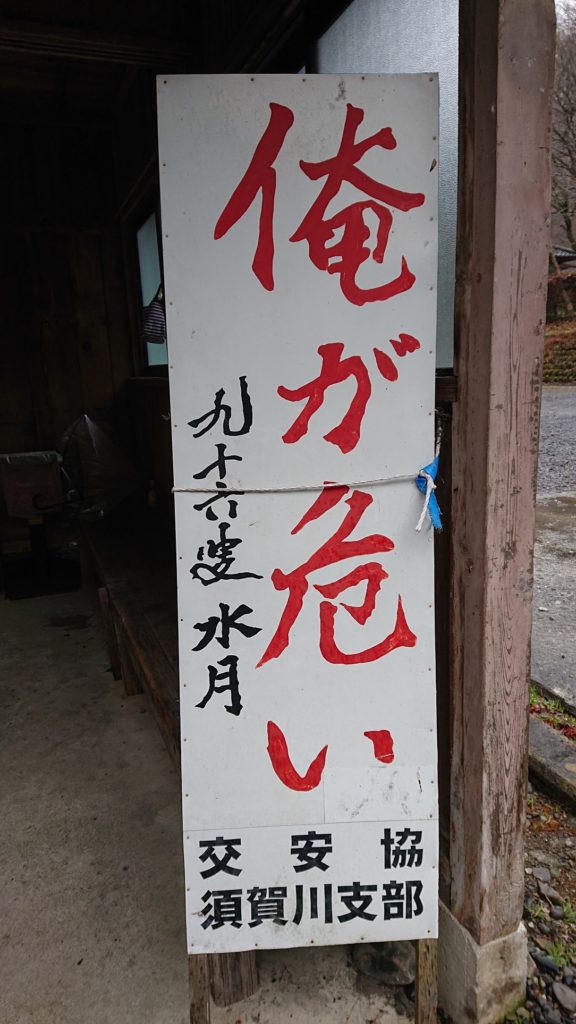 俺が危い
九十六叟 水月
交安協
須賀川支部